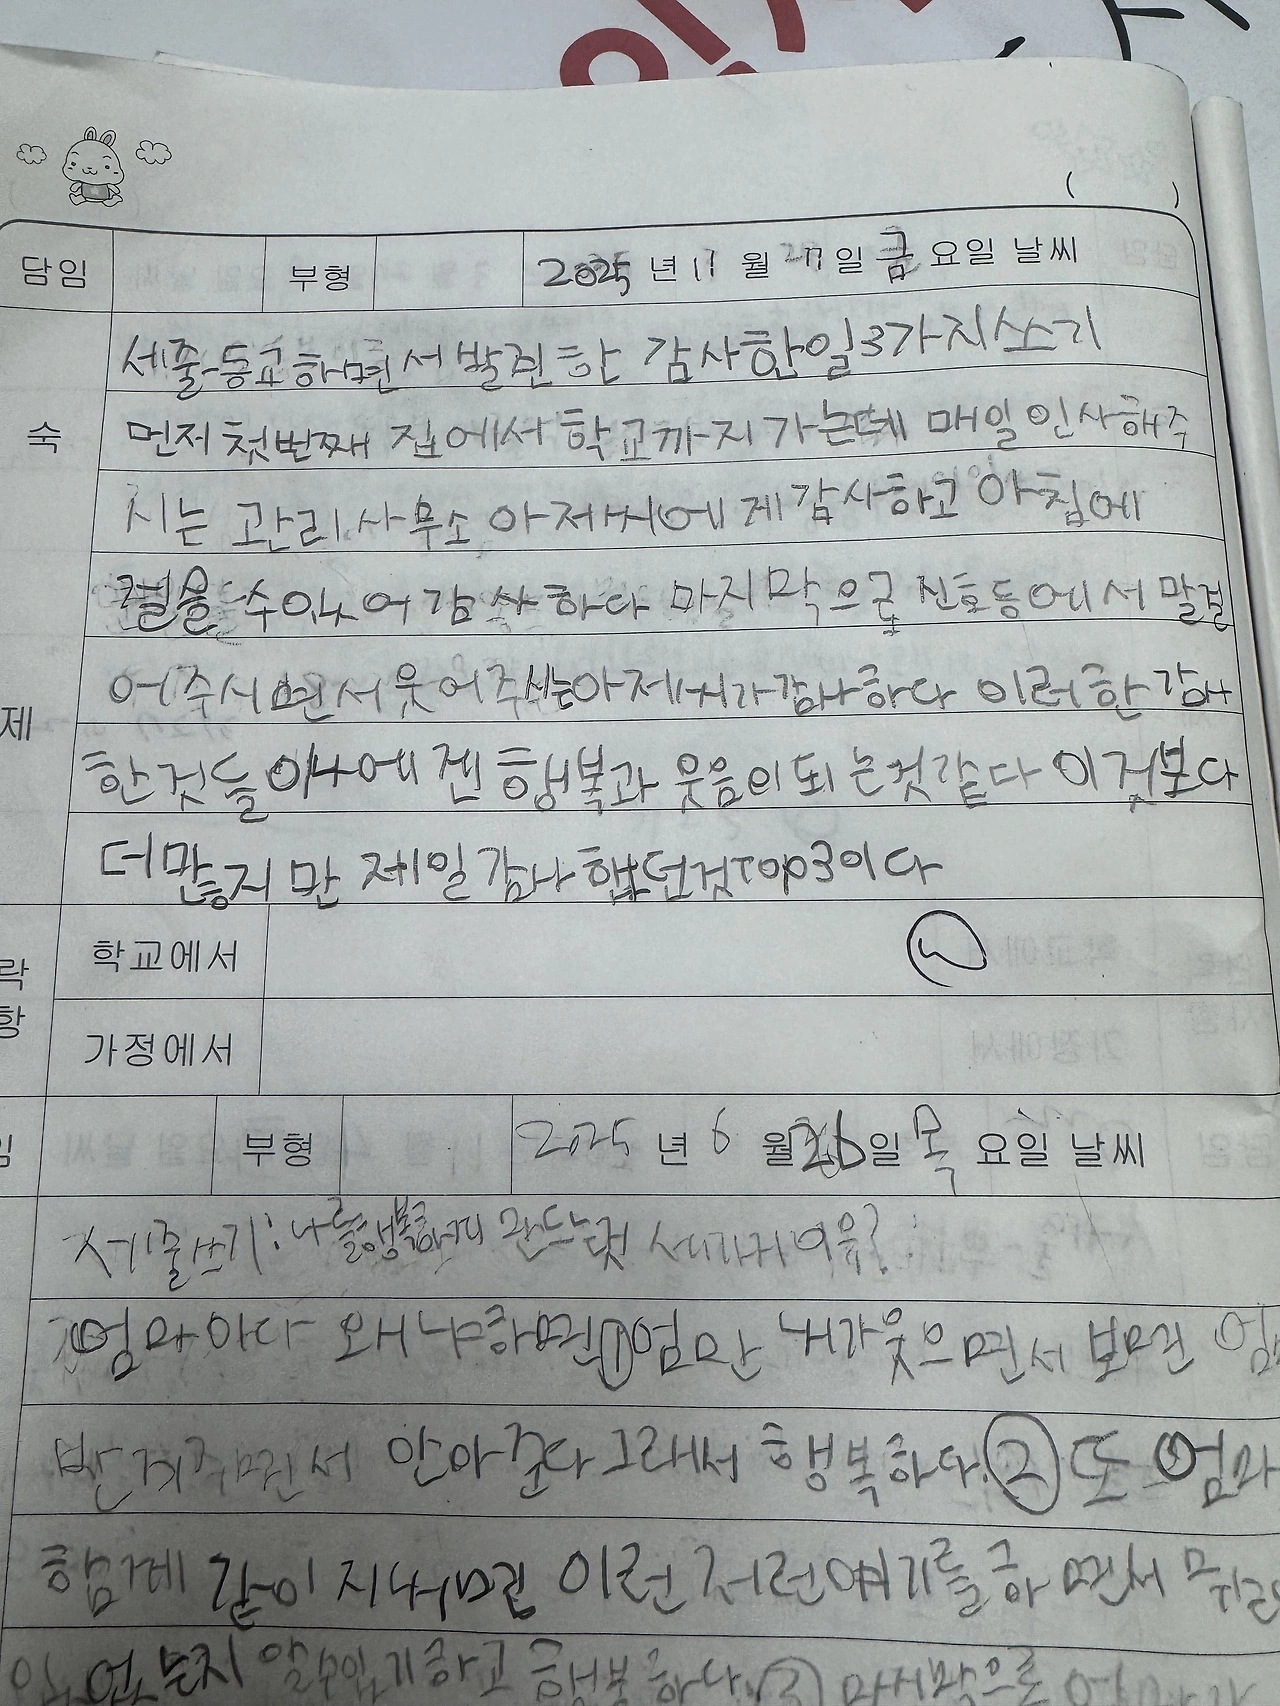 담임 부형 2025 년 월 일 금 요일 날씨
숙 제
세줄 등교하면서 발견한 감사한일3가지쓰기
먼저 첫번째 집에서 학교까지 가는데 매일 인사해주
시는 관리사무소 아저씨에게 감사하고 아침에
걸을 수있어 감사하다 마지막으로 신호등에서 말걸
어주시면서 웃어주시는아저씨가감사하다 이러한 감사
한것들이 에겐 행복과 웃음이되는것같다 이것보다
더많지만 제일감사했던것top3이다
학교에서
가정에서
부형 2025 년 6 월 26일 목 요일 날씨
세줄쓰기: 나를행복하게 만드는것 세가지이유?
엄마이다 왜냐하면①엄만 내가웃으면서 보면
반겨주면서 안아준다 그래서 행복하다. ② 또 엄마
함께 같이 지내면 이런저런얘기를 하면서
알수있기하고 행복하다. ③ 마지막으로